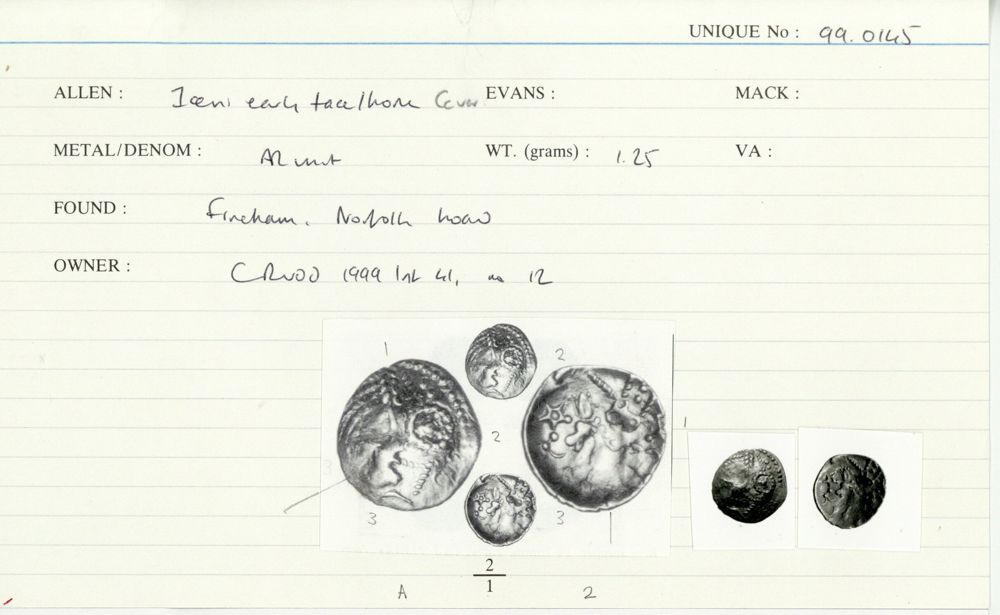 UNIQUE No : 99.0145
ALLEN : Iceni early face/horse EVANS : MACK :
METAL/DENOM : AR unit WT. (grams) : 1.25 VA :
FOUND : Fincham, Norfolk hoard
OWNER : 1999 41, no 12
1
2
2
3
3
3
1
2
1
A 2